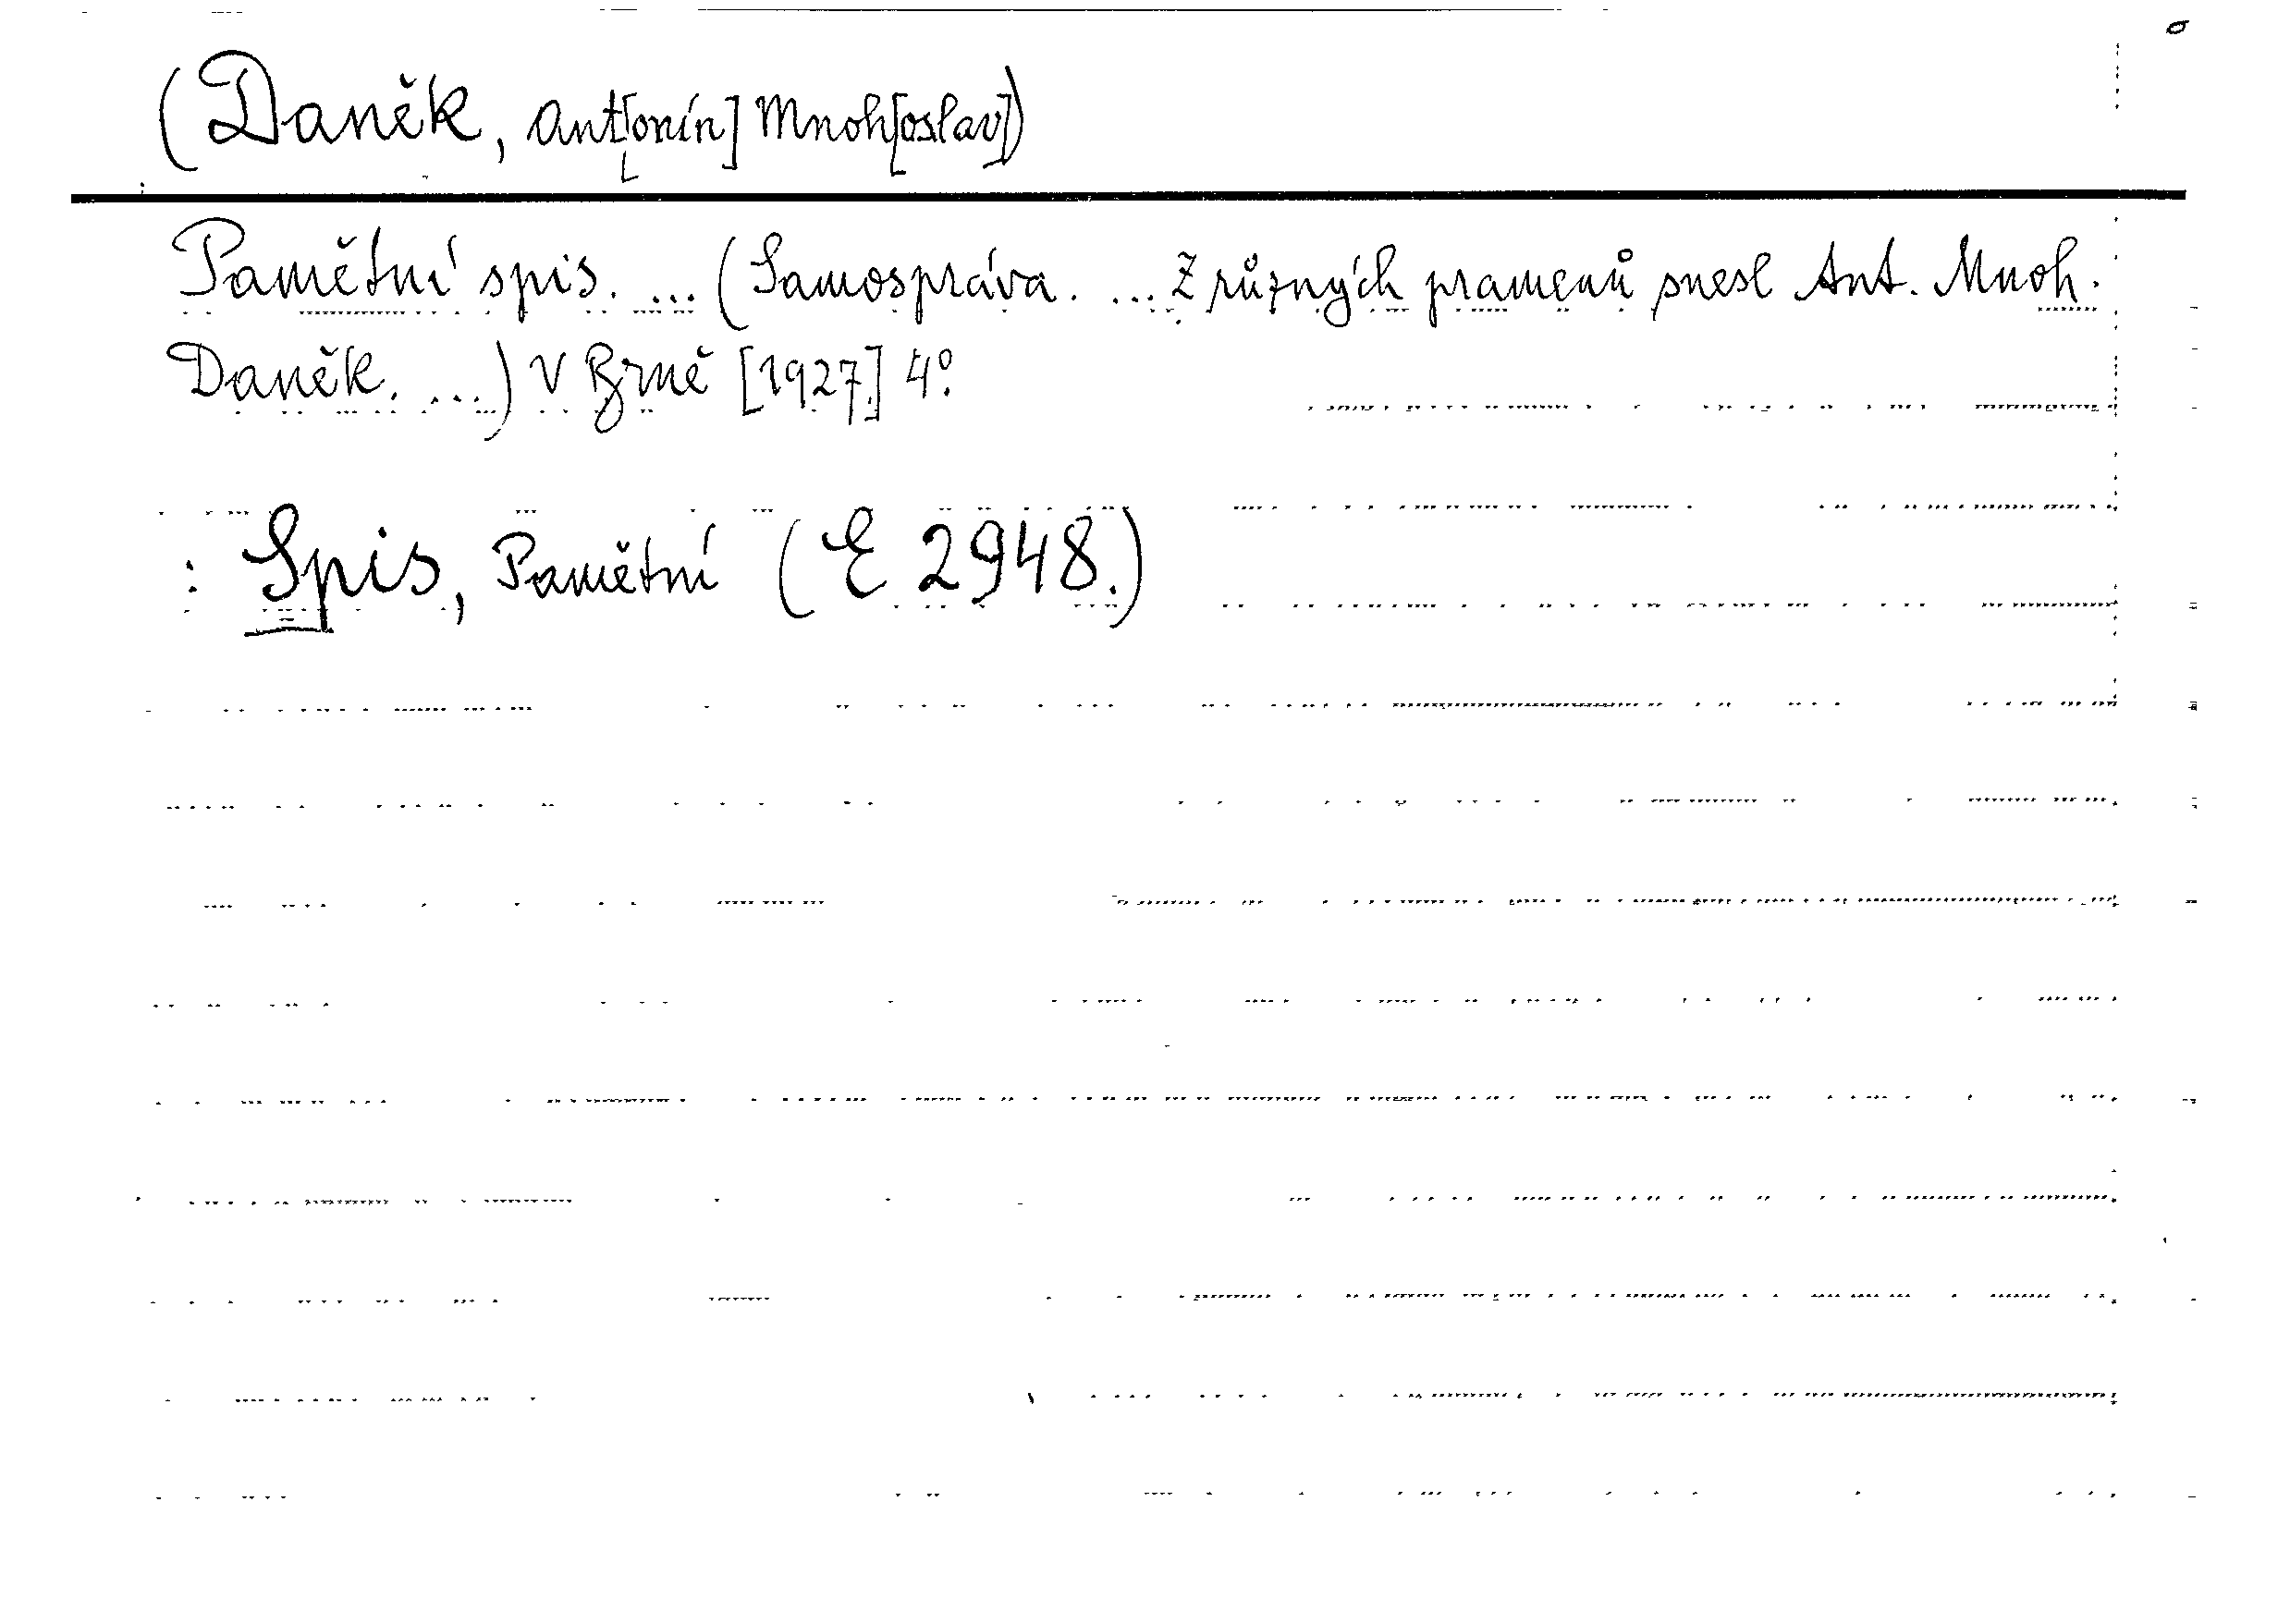 (Daněk, Ant[onín] Mnoh[oslav])
Pamětní spis. ... (Samospráva. ... Z různých pramenů snesl Ant. Mnoh.
Daněk. ...) V Brně [1927.] 4°.
: Spis, Pamětní (E 2948.)